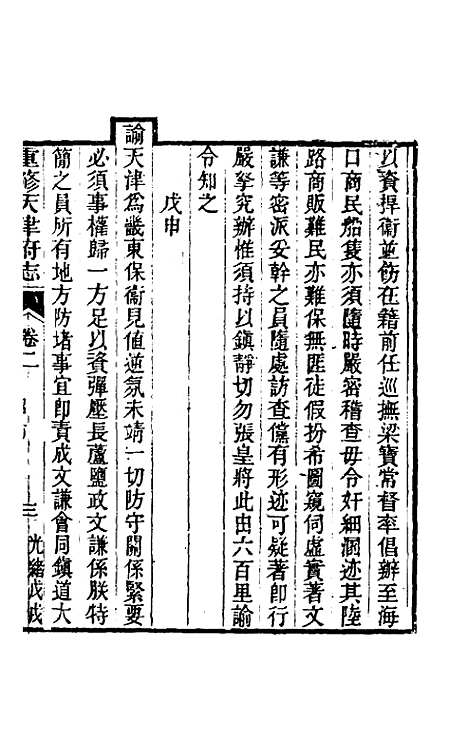 以資捍衞並飭在籍前任巡撫梁寶常督率倡辦至海
口商民船隻亦須隨時嚴密稽查毋令奸細溷迹其陸
路商販難民亦難保無匪徒假扮希圖窺伺虛實著文
謙等密派妥幹之員隨處訪查儻有形迹可疑著卽行
嚴拏究辦惟須持以鎮靜切勿張皇將此由六百里諭
令知之
戊申
諭天津爲畿東保衞見值逆氛未靖一切防守關係緊要
必須事權歸一方足以資彈壓長蘆鹽政文謙係朕特
簡之員所有地方防堵事宜卽責成文謙會同鎮道大
重修天津府志
卷二
三
光緒戊戌